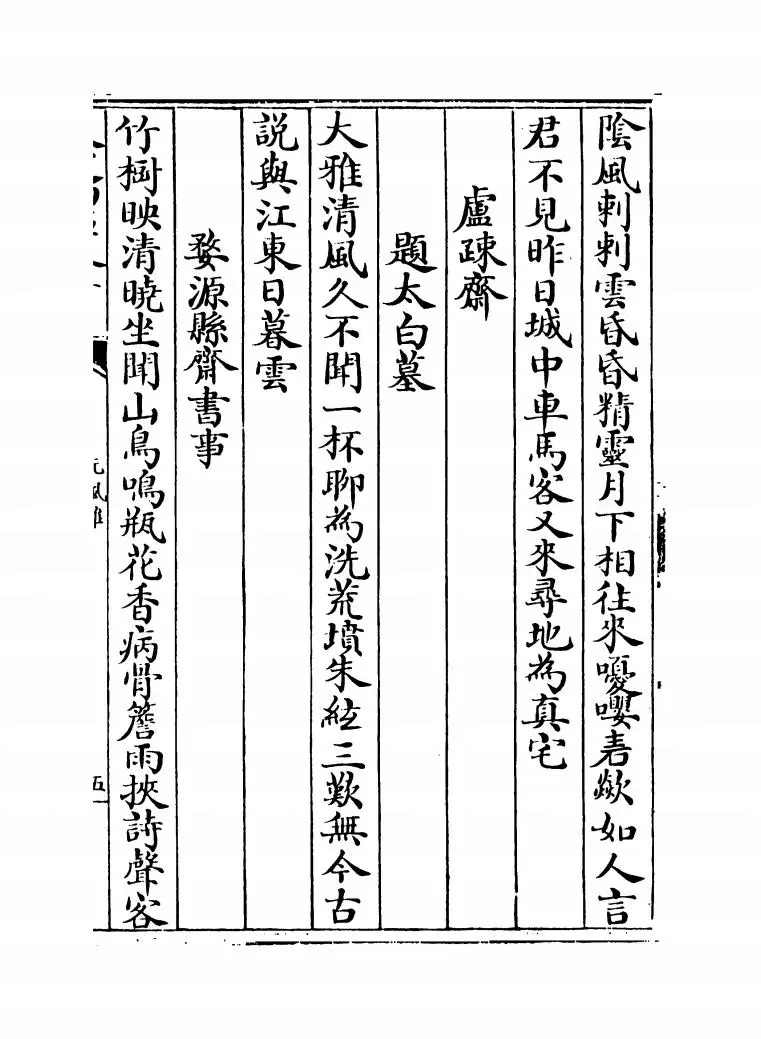 陰風刺刺雲昏昏精靈月下相徃來嚘嚶㐂歘如人言
君不見昨日城中車馬客又來尋地為真宅
盧疎齋
題太白墓
大雅清風久不聞一杯聊為洗荒墳朱絃三歎無今古
説與江東日暮雲
婺源縣齋書事
竹樹映清曉坐聞山鳥鳴瓶花香病骨簷雨挾詩聲客
元風雅
五